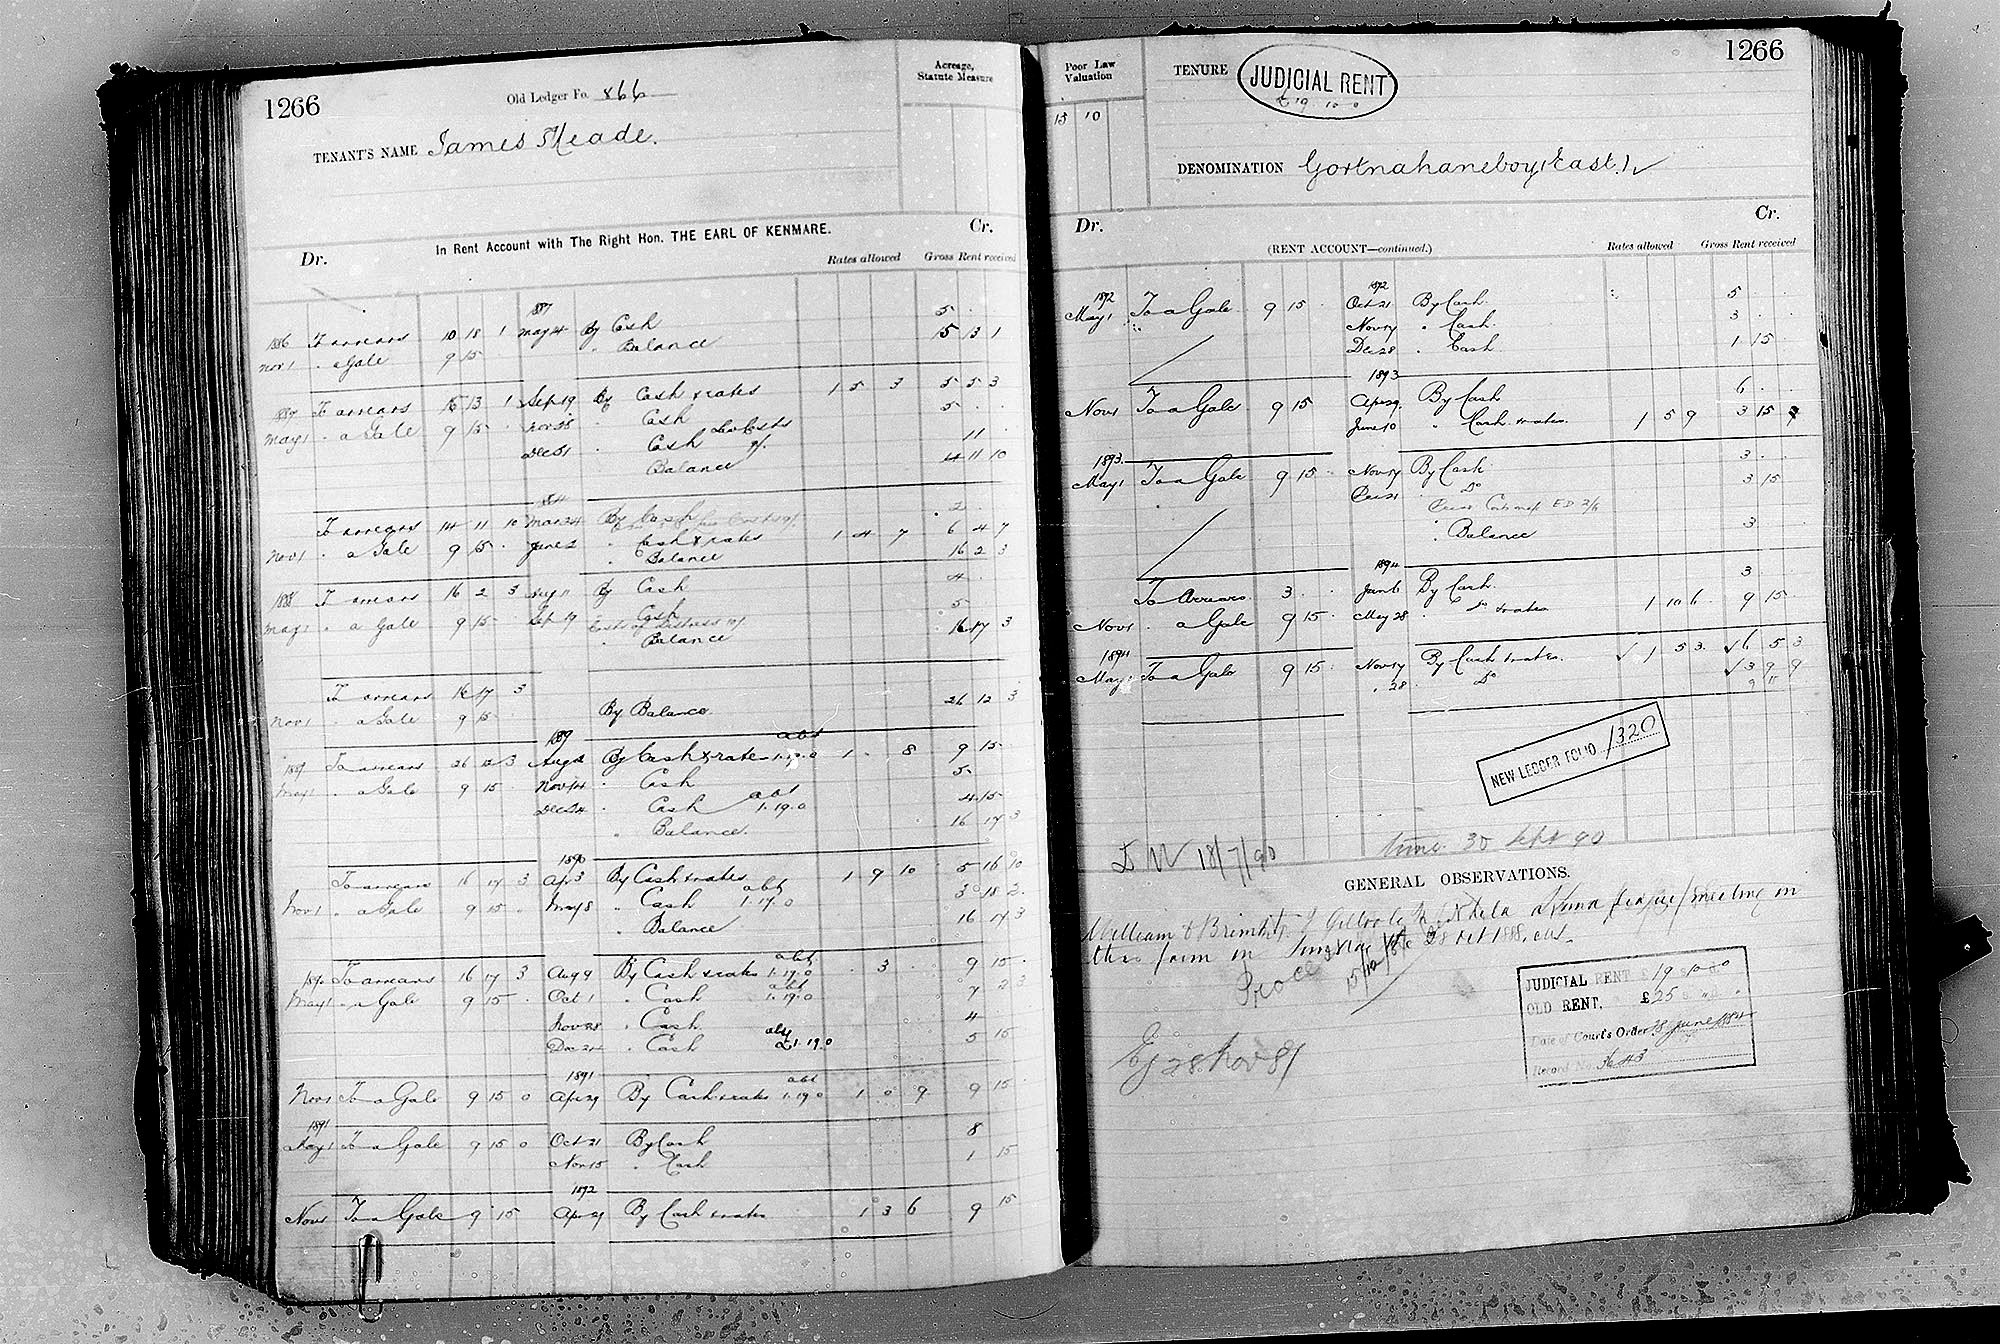 1266
Old Ledger Fo. 866
Acreage,
Statute Measure
TENANT'S NAME James Meade.
In Rent Account with The Right Hon. THE EARL OF KENMARE.
Dr.
Cr.
Rates allowed Gross Rent received
1887
1886 To arrears 10 18 1 May 14 By Cash 5
Nov 1 " a Gale 9 15 " Balance 15 13 1
1887 To arrears 15 13 1 Sep 19 By Cash & rates 1 5 3 5 5 3
May 1 " a Gale 9 15 Nov 25 " Cash 5
Dec 31 " Cash 11
Balance 4 11 10
To arrears 14 11 10 Mar 24 By Cash 2
Nov 1 " a Gale 9 15 June 2 " Cash & rates 1 4 7 6 4 7
" Balance 16 2 3
1888 To arrears 16 2 3 Aug 11 By Cash 4
May 1 " a Gale 9 15 Sep 19 Cash 5
Cost of Distress
" Balance 16 17 3
To arrears 16 17 3
Nov 1 " a Gale 9 15 By Balance 26 12 3
1889 abt
1889 To arrears 26 12 3 Aug 2 By Cash & rates 1.19.0 1 - 8 9 15
May 1 " a Gale 9 15 Nov 14 " Cash 5
Dec 24 " Cash abt 1.19.0 4 15
" Balance 16 17 3
1890
To arrears 16 17 3 Apr 3 By Cash & rates 1 9 10 5 16 10
Nov 1 " a Gale 9 15 May 8 " Cash abt 1.17.0 3 18 2
" Balance 16 17 3
1890 To arrears 16 17 3 Aug 9 By Cash & rates abt 1.19.0 3 9 15
May 1 " a Gale 9 15 Oct 1 " Cash abt 1.19.0 7 2 3
Nov 28 " Cash 4
Dec 24 " Cash abt £1.19.0 5 15
1891
Nov 1 To a Gale 9 15 0 Apr 29 By Cash & rates abt 1.19.0 1 0 9 9 15
1891
May 1 To a Gale 9 15 0 Oct 21 By Cash 8
Nov 15 " Cash 1 15
1892
Nov 1 To a Gale 9 15 Apr 29 By Cash & rates 1 3 6 9 15
1266
Poor Law
Valuation
15 10
TENURE JUDICIAL RENT
£19.10.0
DENOMINATION Gortnahaneboy (East)
Dr.
Cr.
(RENT ACCOUNT—continued.)
Rates allowed Gross Rent received
1892 1892
May 1 To a Gale 9 15 Oct 21 By Cash 5
Nov 17 " Cash 3
Dec 28 " Cash 1 15
1893
Nov 1 To a Gale 9 15 Apr 29 By Cash 6
June 10 " Cash & rates 1 5 9 3 15
1893
May 1 To a Gale 9 15 Nov 17 By Cash 3
Dec 21 " Do 3 15
" Balance 3
1894
To Arrears 3 Jan 6 By Cash 3
Nov 1 " a Gale 9 15 May 28 " Do & rates 1 10 6 9 15
1894
May 1 To a Gale 9 15 Nov 17 By Cash & rates ✓ 1 5 3 ✓ 6 5 3
" 28 " Do ✓ 3 9 9
9 15
NEW LEDGER FOLIO 1320
18/7/90
time 30 Sept 90
GENERAL OBSERVATIONS.
meeting in
farm in 28 Oct 1888.
15/10/
28 Nov 81
JUDICIAL RENT £19.10.0
OLD RENT, £25
Date of Court's Order 28 June 1884
Record No. 3643